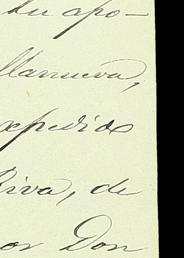 su apo-
llanueva,
xpedido
Riva, de
or Don